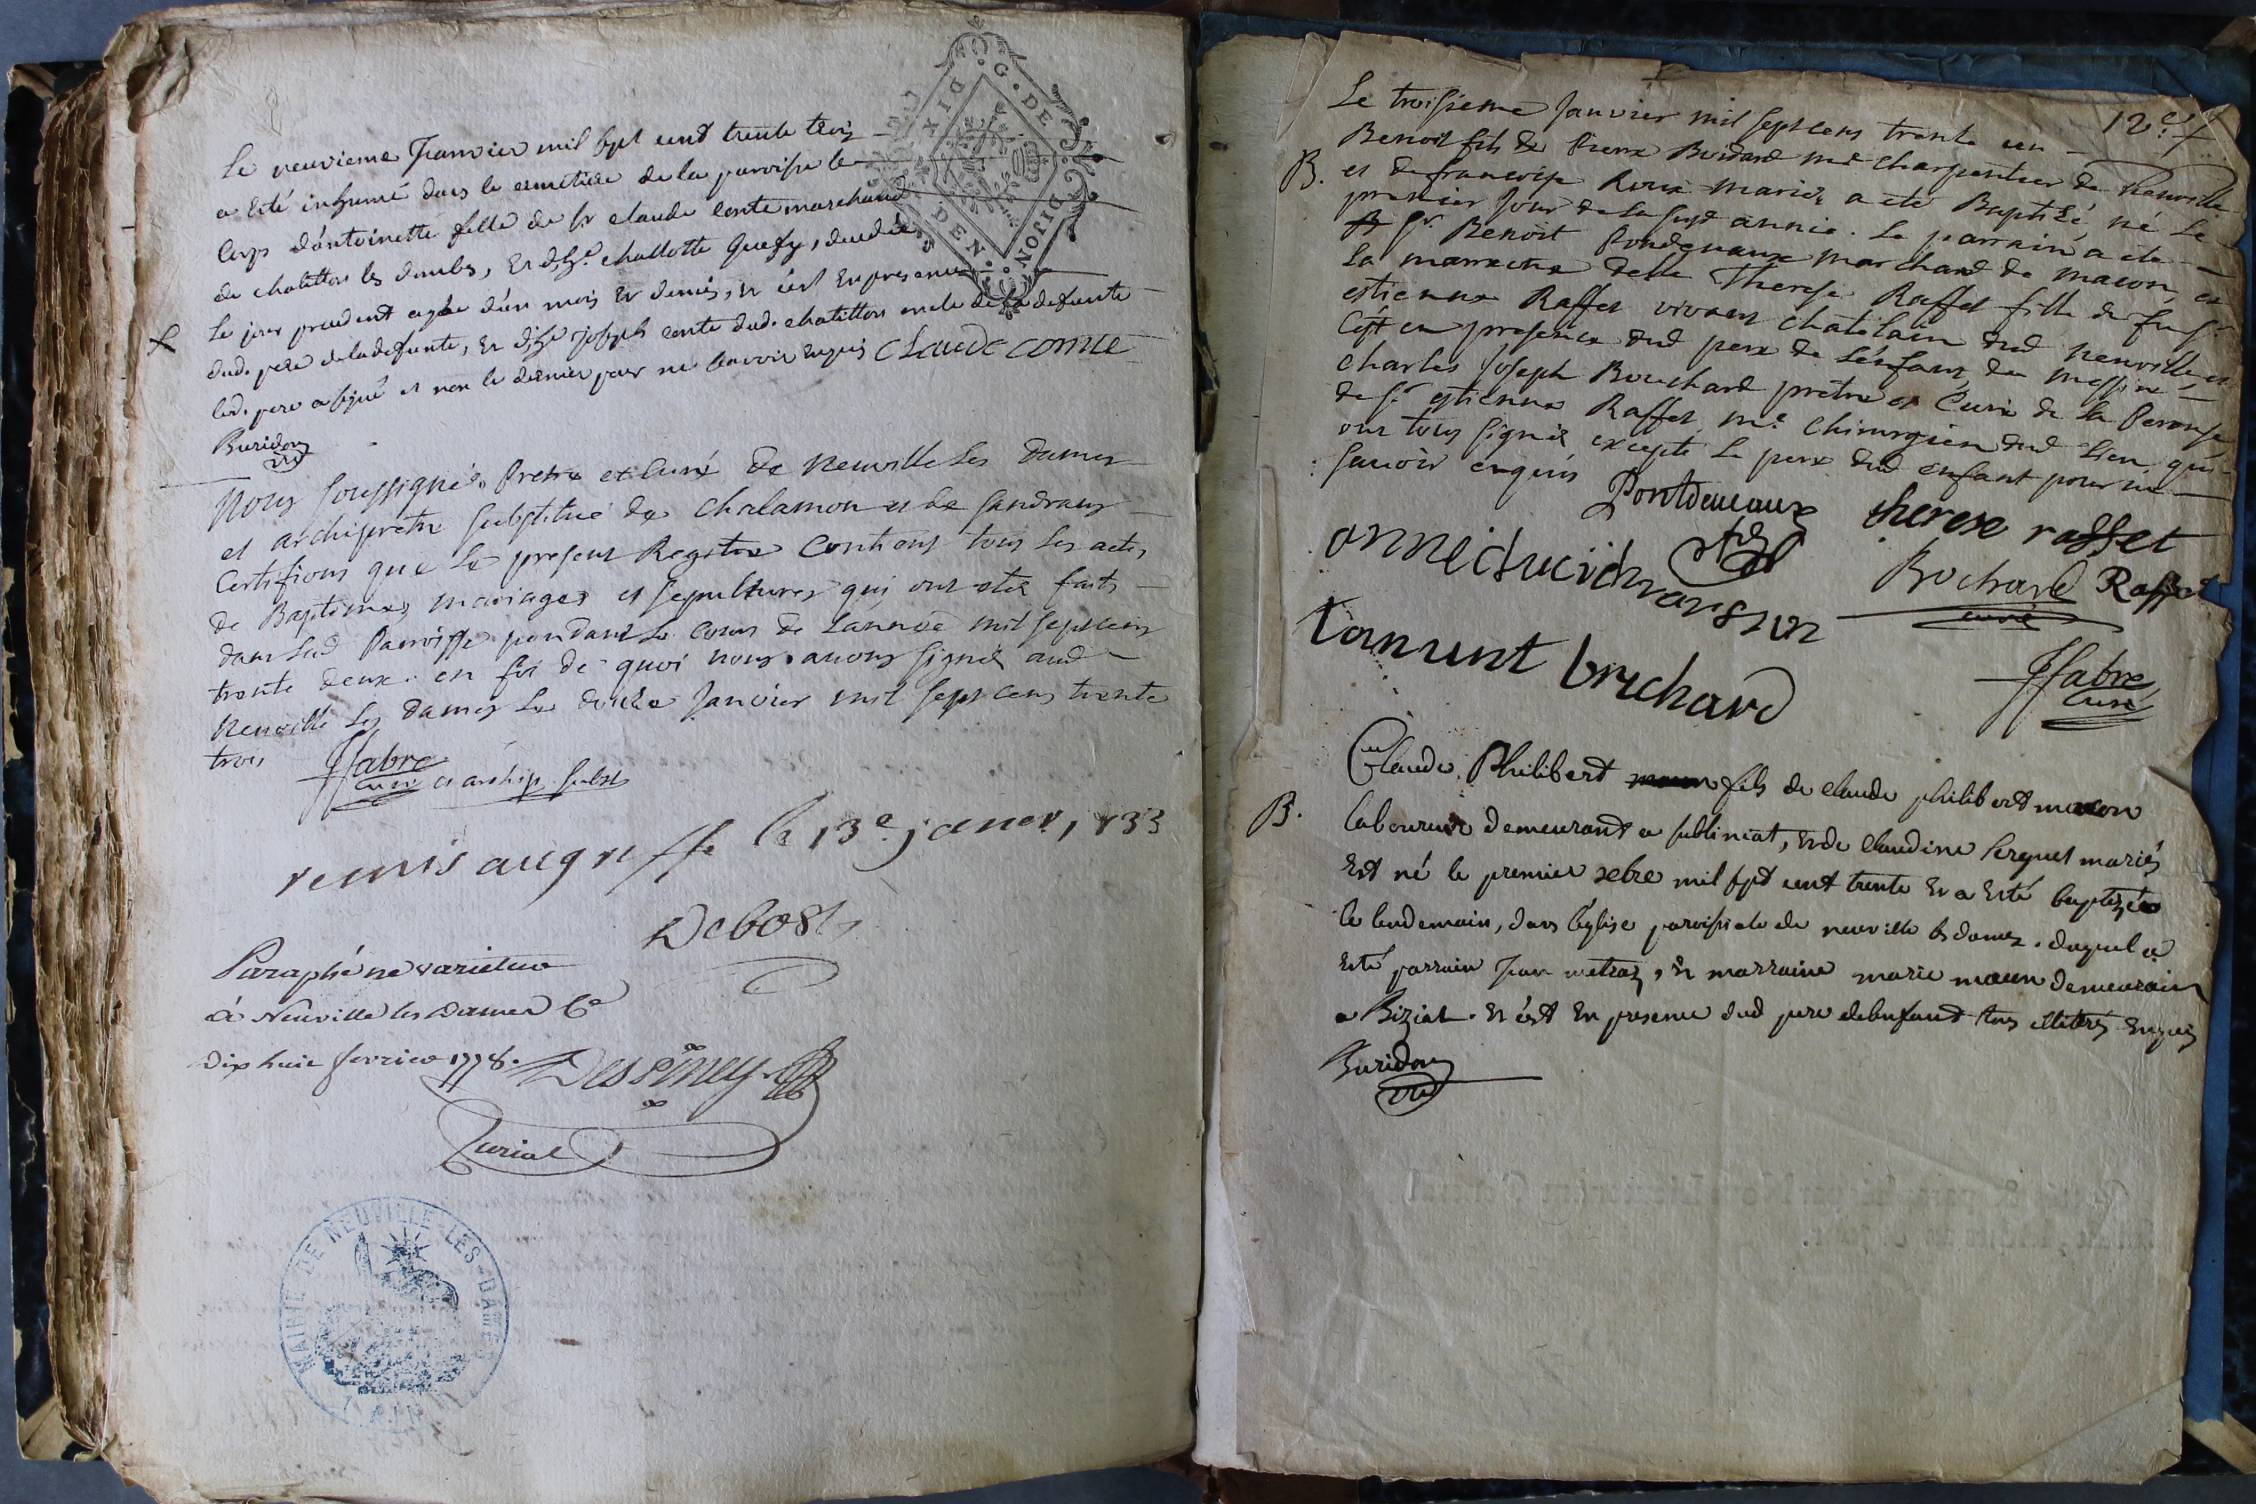 Le neuvieme Janvier mil sept cent trente trois
a Esté inhumé dans le cemetiere de la paroisse le
Corps d'antoinette fille de Sr claude Conte marchand
de chatillon les dombes, Et d'hte charlotte, decedée
le jour precedent agée d'un mois Et demis, Et c'est En presence
dud. pere de la defunte, Et d'hte joseph conte dud. chatillon oncle de la defunte
led. pere a signé et non le dernier pour ne scavoir Enquis Claude comte
Buridon
Nous soussignés Pretre et Curé de Neuville les dames
et archipretre substitué de Chalamon et de sandrans
Certifions que le present Registre Contient tous les actes
de Baptemes mariages et sepultures qui ont eté faits
dans lad Parroisse pendant le cours de Lannée mil sept cens
trente deux. en foi de quoi nous avons signés aud
Neuville les dames le douze Janvier mil sept cens trente
trois
Ffabre
Curé et archip. subst
remis au greffe le 13e janvr 1733
Debost
Paraphé ne varietur
à Neuville les Dames Ce
dix huit fevrier 1778.
G. DE DIJON
DIX DEN.
MAIRIE DE NEUVILLE-LES-DAMES
(AIN)
12e
Le troisieme Janvier mil sept cens trente un
Benoit fils de Pierre Boidard me charpentier de Neuville
B. et de francoise Roux mariés a eté Baptisé, né le
premier jour de la susd année. Le parrain a eté
Sr. Benoit Pondevaux marchand de macon, et
La marraine delle Therese Raffet fille de fu Sr
estienne Raffet vivant chatelain dud neuville, et
C'est en presence dud pere de L'enfant, de messire
Charles Joseph Bouchard pretre et Curé de la Perouse
de Sr estienne Raffet me. Chirurgien dud lieu, qui
ont tous signés excepté le pere dud enfant pour ne
savoir enquis
Pontdevaux therese raffet
Bochard Raffet
curé
Lanurit brichard
Ffabre
Curé
Claude Philibert fils de claude philibert macon
B. laboureur demeurant a sulliniat, Et de Claudine serguet mariés
Est né le premier xebre mil sept cent trente Et a Esté baptizé
le lendemain, dans l'eglise paroissiale de neuville les dames. duquel a
Esté parrain Jean metraz, Et marraine marie macon demeurain
a Biziat. Et c'est En presence dud pere de l'enfant tous illiterés Enquis
Buridon